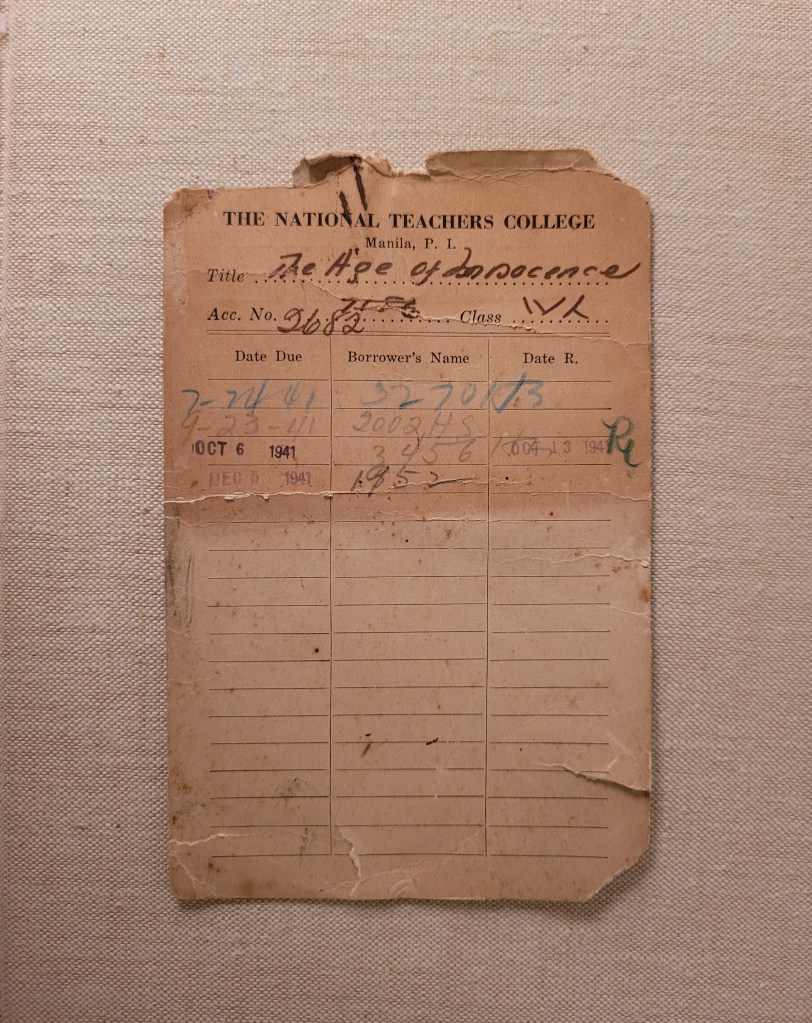 THE NATIONAL TEACHERS COLLEGE
Manila, P. I.
Title The Age of Innocence
Acc. No. 2682 Class
Date Due Borrower's Name Date R.
7-24 41 3270
9-23-41 2002 HS
OCT 6 1941 3456 OCT 13 194
DEC 5 1941 1852